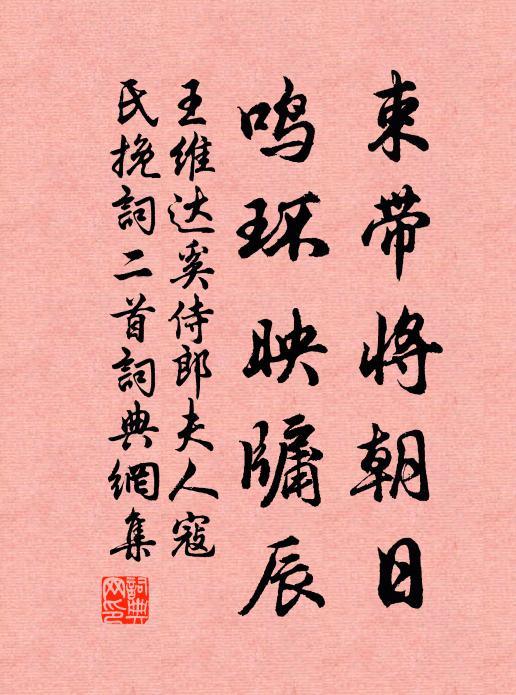 束带将朝日
鸣环映牖辰
王维达奚侍郎夫人寇
氏挽詞二首詞典網集
詞典